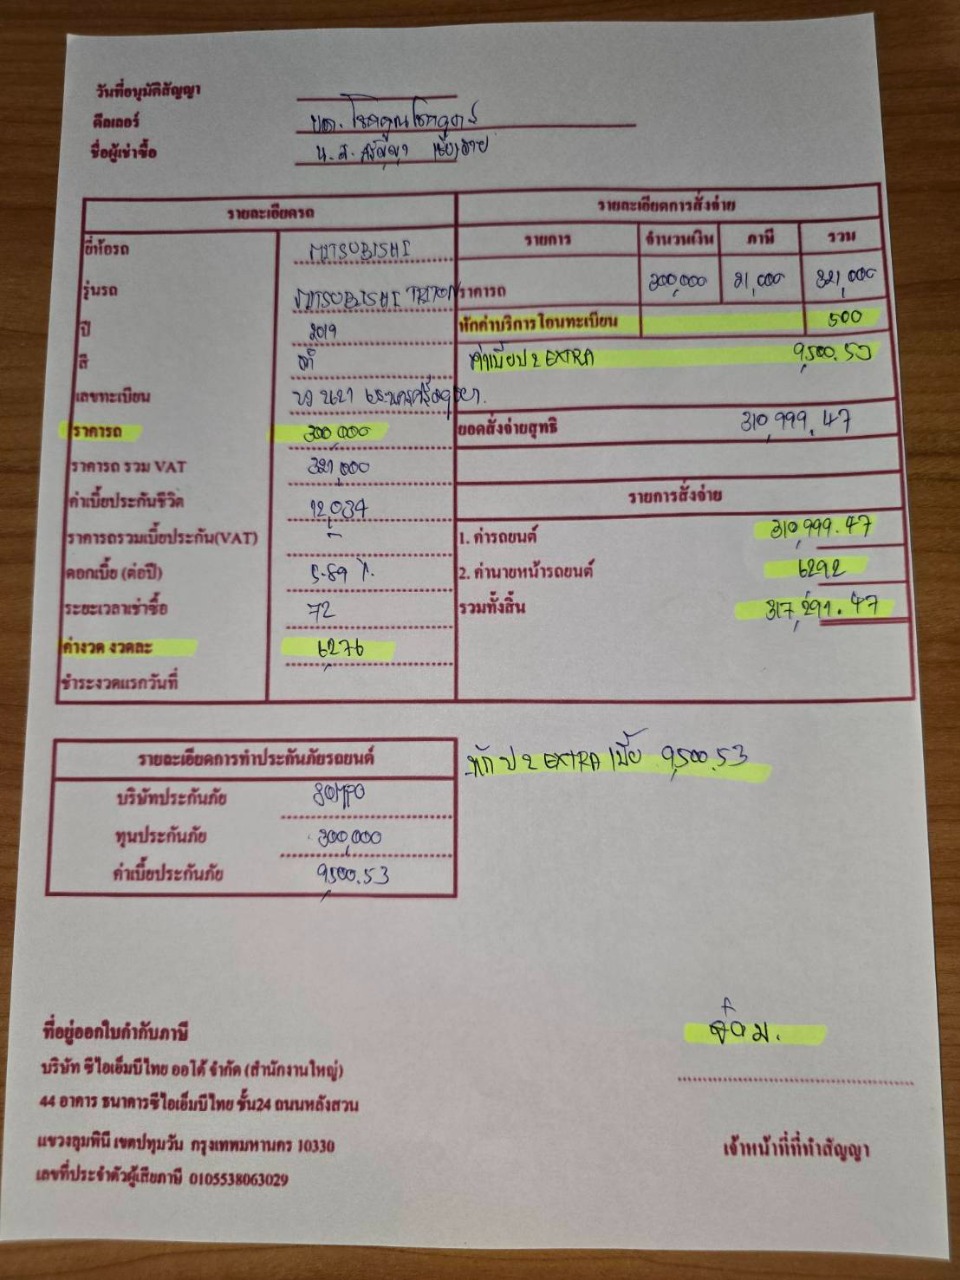 วันที่อนุมัติสัญญา
ดีลเลอร์ บจ. โชคคูณโชคคูณ
ชื่อผู้เช่าซื้อ น.ส.
รายละเอียดรถ
ยี่ห้อรถ MITSUBISHI
รุ่นรถ MITSUBISHI TRITON
ปี 2019
สี ดำ
เลขทะเบียน
ราคารถ 300,000
ราคารถ รวม VAT 321,000
ค่าเบี้ยประกันชีวิต 12,034
ราคารถรวมเบี้ยประกัน(VAT) -
ดอกเบี้ย (ต่อปี) 5.89 %
ระยะเวลาเช่าซื้อ 72
ค่างวด งวดละ 6,276
ชำระงวดแรกวันที่
รายละเอียดการสั่งจ่าย
รายการ จำนวนเงิน ภาษี รวม
ราคารถ 300,000 21,000 321,000
หักค่าบริการโอนทะเบียน 500
ค่าเบี้ยป 2 EXTRA 9,500.53
ยอดสั่งจ่ายสุทธิ 310,999.47
รายการสั่งจ่าย
1. ค่ารถยนต์ 310,999.47
2. ค่านายหน้ารถยนต์ 6,292
รวมทั้งสิ้น 317,291.47
รายละเอียดการทำประกันภัยรถยนต์
บริษัทประกันภัย
ทุนประกันภัย 300,000
ค่าเบี้ยประกันภัย 9,500.53
หัก ป 2 EXTRA เบี้ย 9,500.53
ที่อยู่ออกใบกำกับภาษี
บริษัท ซีไอเอ็มบีไทย ออโต้ จำกัด (สำนักงานใหญ่)
44 อาคาร ธนาคารซีไอเอ็มบีไทย ชั้น24 ถนนหลังสวน
แขวงลุมพินี เขตปทุมวัน กรุงเทพมหานคร 10330
เลขที่ประจำตัวผู้เสียภาษี 0105538063029
เจ้าหน้าที่ที่ทำสัญญา